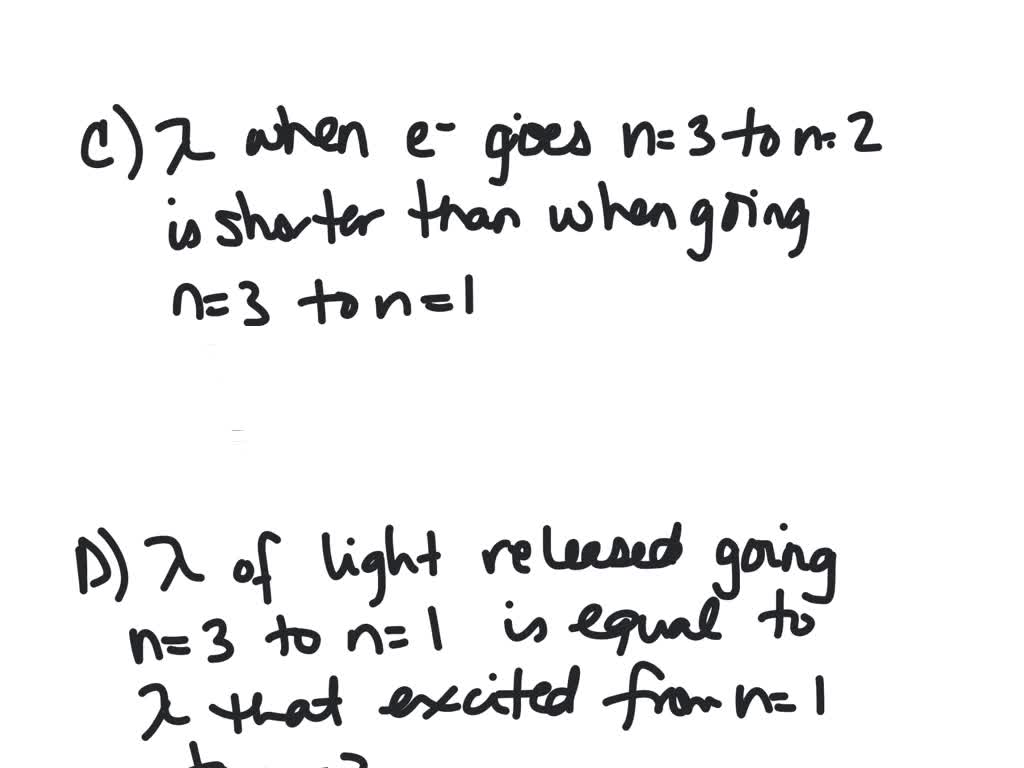 C) λ when e- goes n=3 to n=2
is shorter than when going
n=3 to n=1
D) λ of light released going
n=3 to n=1 is equal to
λ that excited from n=1